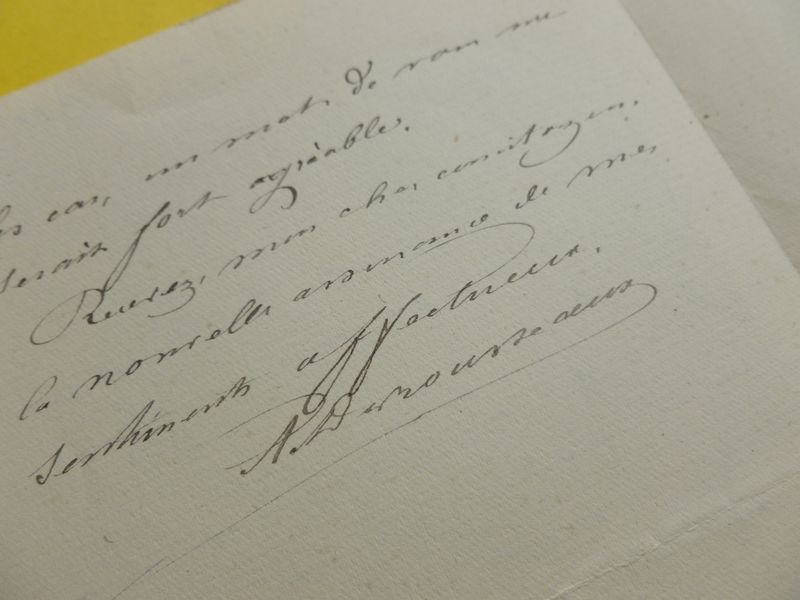 cas, un mot de vous me
serait fort agréable.
Recevez, mon cher concitoyen,
la nouvelle assurance de mes
sentiments affectueux.
A. Derousseaux